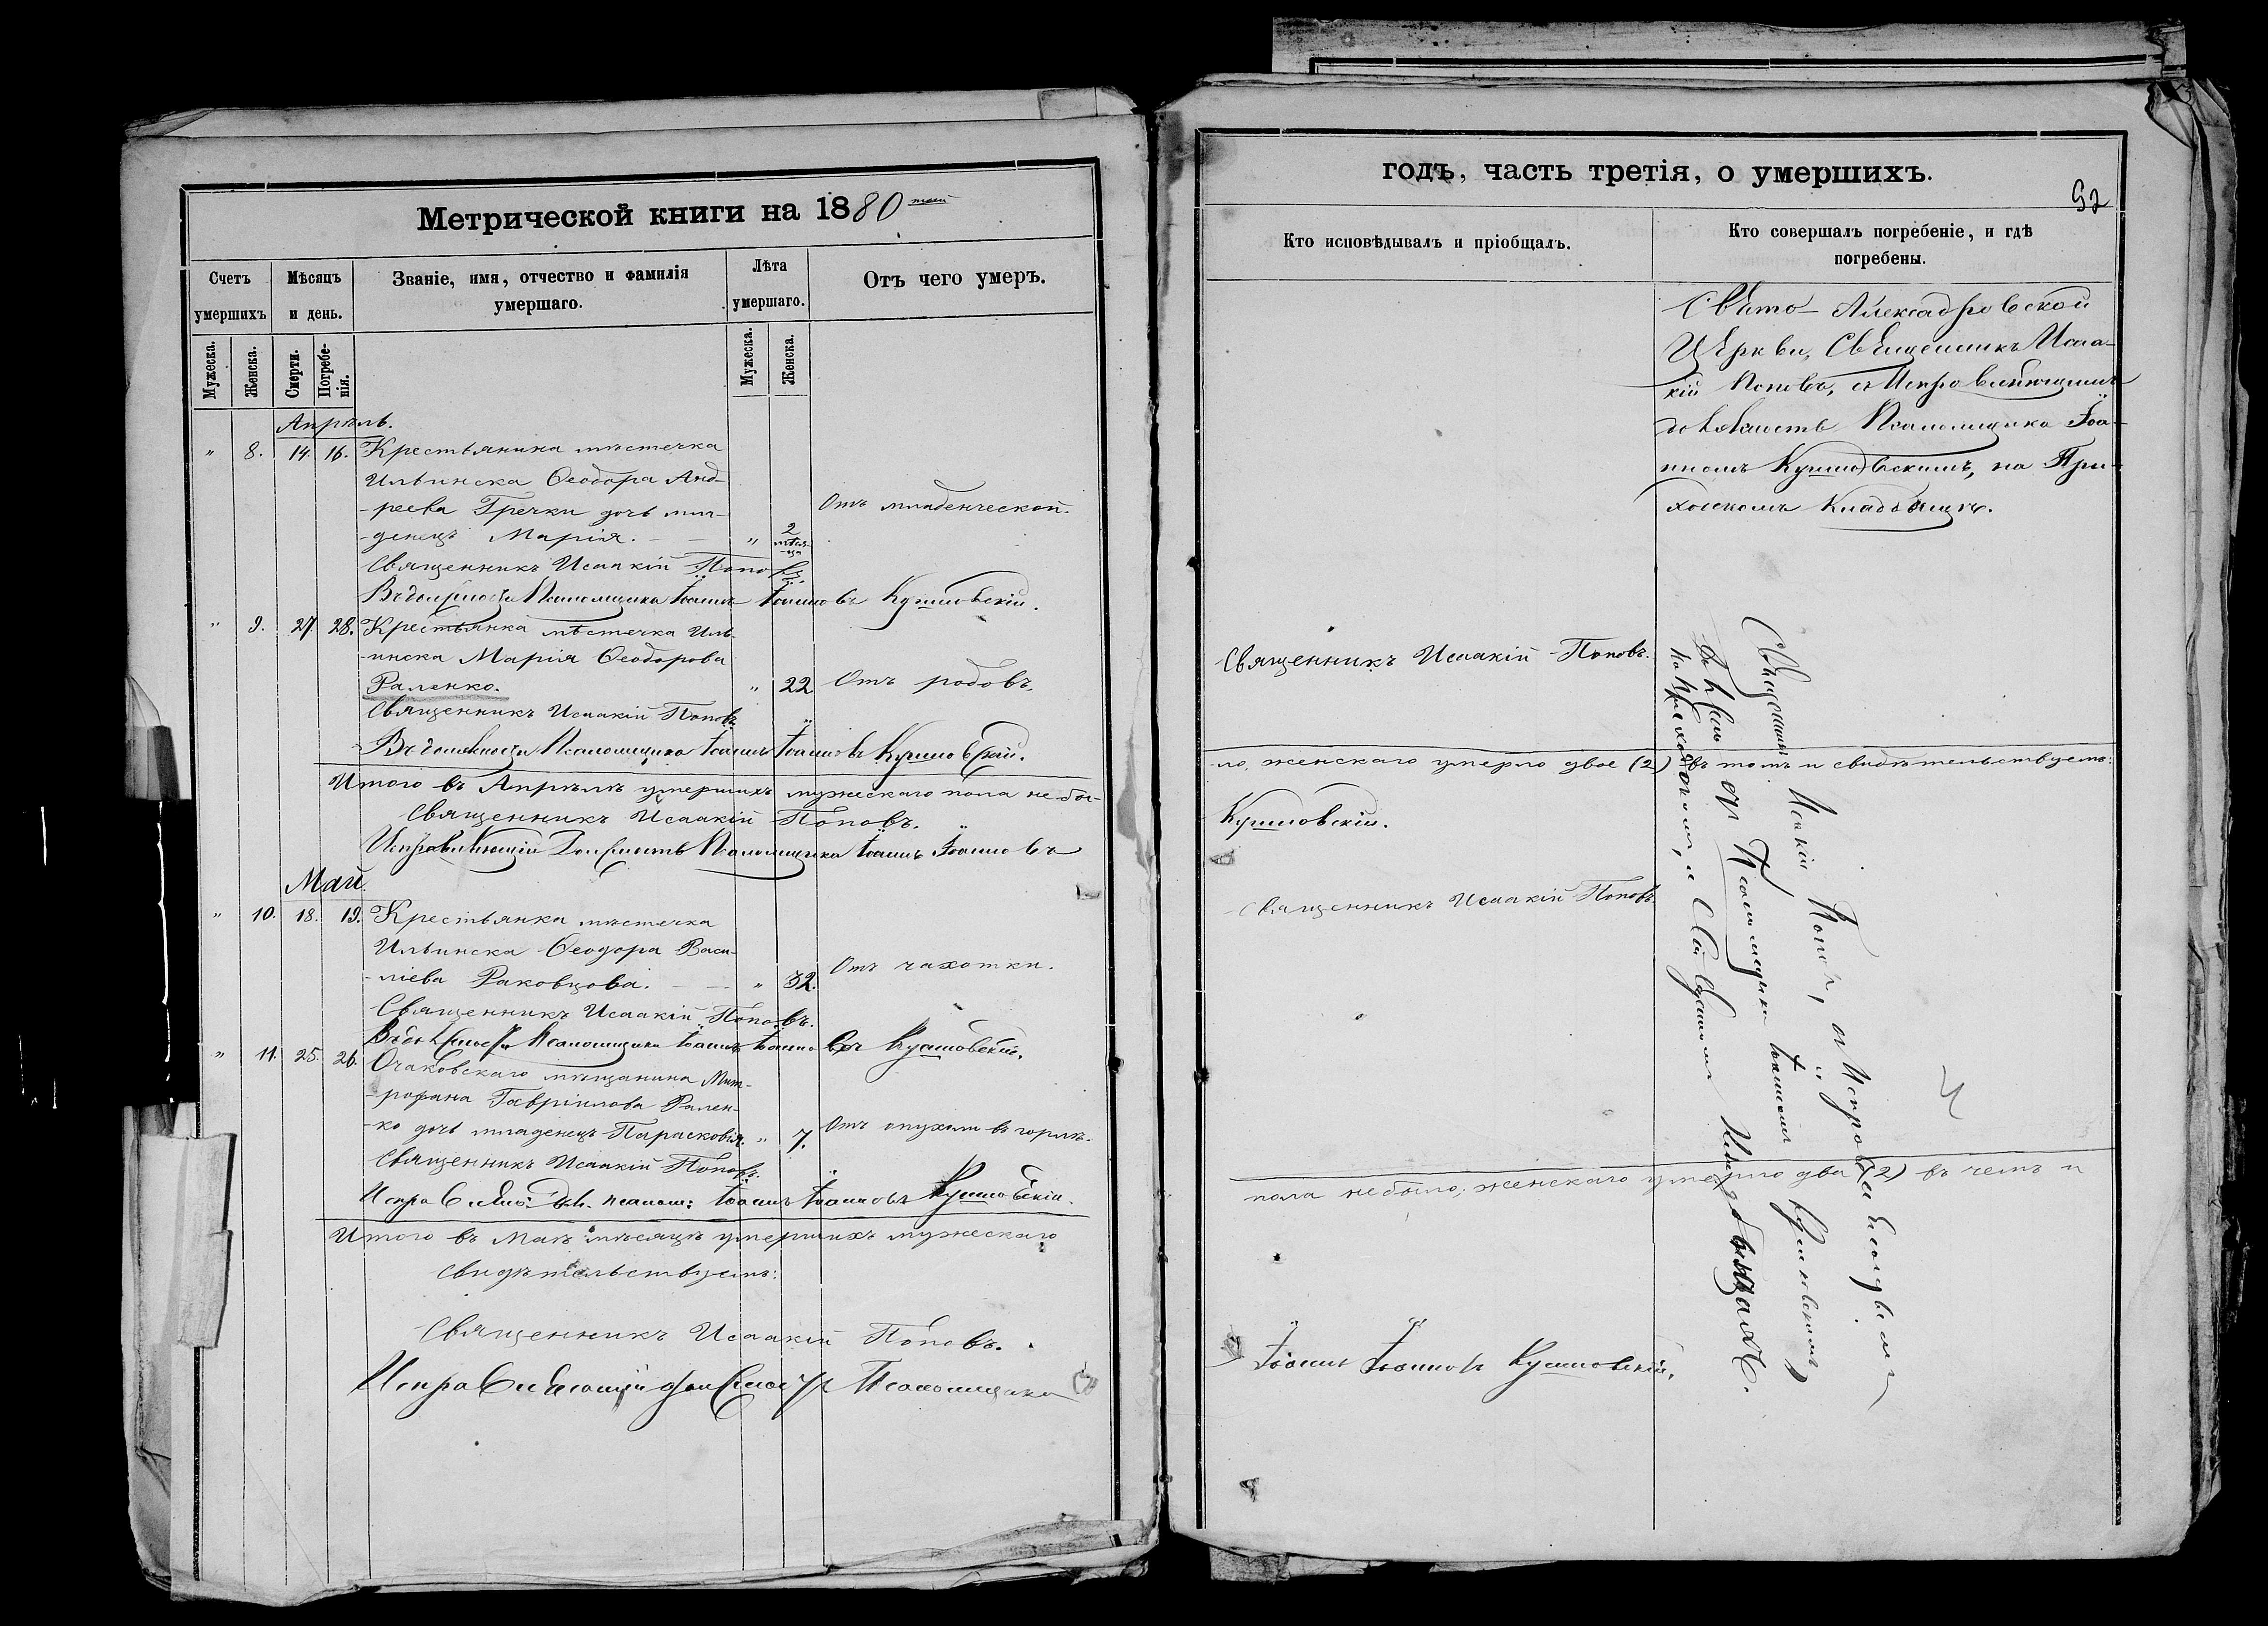 Метрической книги на 1880
Счетъ умершихъ
Мѣсяцъ и день.
Званіе, имя, отчество и фамилія умершаго.
Лѣта умершаго.
Отъ чего умеръ.
Мужеска.
Женска.
Смерти.
Погребенія.
Мужеска.
Женска.
Апрѣль.
" 8. 14. 16. Крестьянина мѣстечка
Ильинска Ѳеодора Анд-
-реева Гречки дочь мла-
-денецъ Марія. " 2 мѣся-ца
Отъ младенческой.
Священникъ Исаакій Поповъ.
Въ должности Псаломщика Іоаннъ Іоанновъ Кушновскій.
" 9. 27. 28. Крестьянка мѣстечка Иль-
-инска Марія Ѳеодорова
Раленко. " 22 Отъ родовъ.
Священникъ Исаакій Поповъ.
Въ должности Псаломщика Іоаннъ Іоанновъ Кушновскій.
Итого въ Апрѣлѣ умершихъ мужескаго пола не бы-
Священникъ Исаакій Поповъ.
Исправляющій Должность Псаломщика Іоаннъ Іоанновъ
Май.
" 10. 18. 19. Крестьянка мѣстечка
Ильинска Ѳеодора Васи-
-ліева Раковцова. " 32. Отъ чахотки.
Священникъ Исаакій Поповъ.
Въ должности Псаломщика Іоаннъ Іоанновъ Кушновскій.
" 11. 25. 26. Очаковскаго мѣщанина Мит-
-рофана Гавріилова Рален-
-ко дочь младенецъ Парасковія. " 7. Отъ опухоли въ горлѣ.
Священникъ Исаакій Поповъ.
Исправляю: дол. псалом: Іоаннъ Іоанновъ Кушновскій.
Итого въ Маѣ мѣсяцѣ умершихъ мужескаго
свидѣтельствуемъ:
Священникъ Исаакій Поповъ.
Исправляющій должность Псаломщика
годъ, часть третія, о умершихъ.
52
Кто исповѣдывалъ и пріобщалъ.
Кто совершалъ погребеніе, и гдѣ погребены.
Свято-Александровской
Церкви, Священникъ Исаа-
кій Поповъ, съ Исправляющимъ
должность Псаломщика Іоа-
нномъ Кушновскимъ, на При-
ходскомъ Кладбищѣ.
Священникъ Исаакій Поповъ.
ло, женскаго умерло двое (2) въ томъ и свидѣтельствуемъ:
Кушновскій.
Священникъ Исаакій Поповъ.
Священникъ Исакій Поповъ, съ Исправляющимъ
Псаломщика Іоанномъ Кушновскимъ,
на Приходскомъ
Кладбищахъ.
пола не было; женскаго умерло два (2) въ чемъ и
Іоаннъ Іоанновъ Кушновскій.